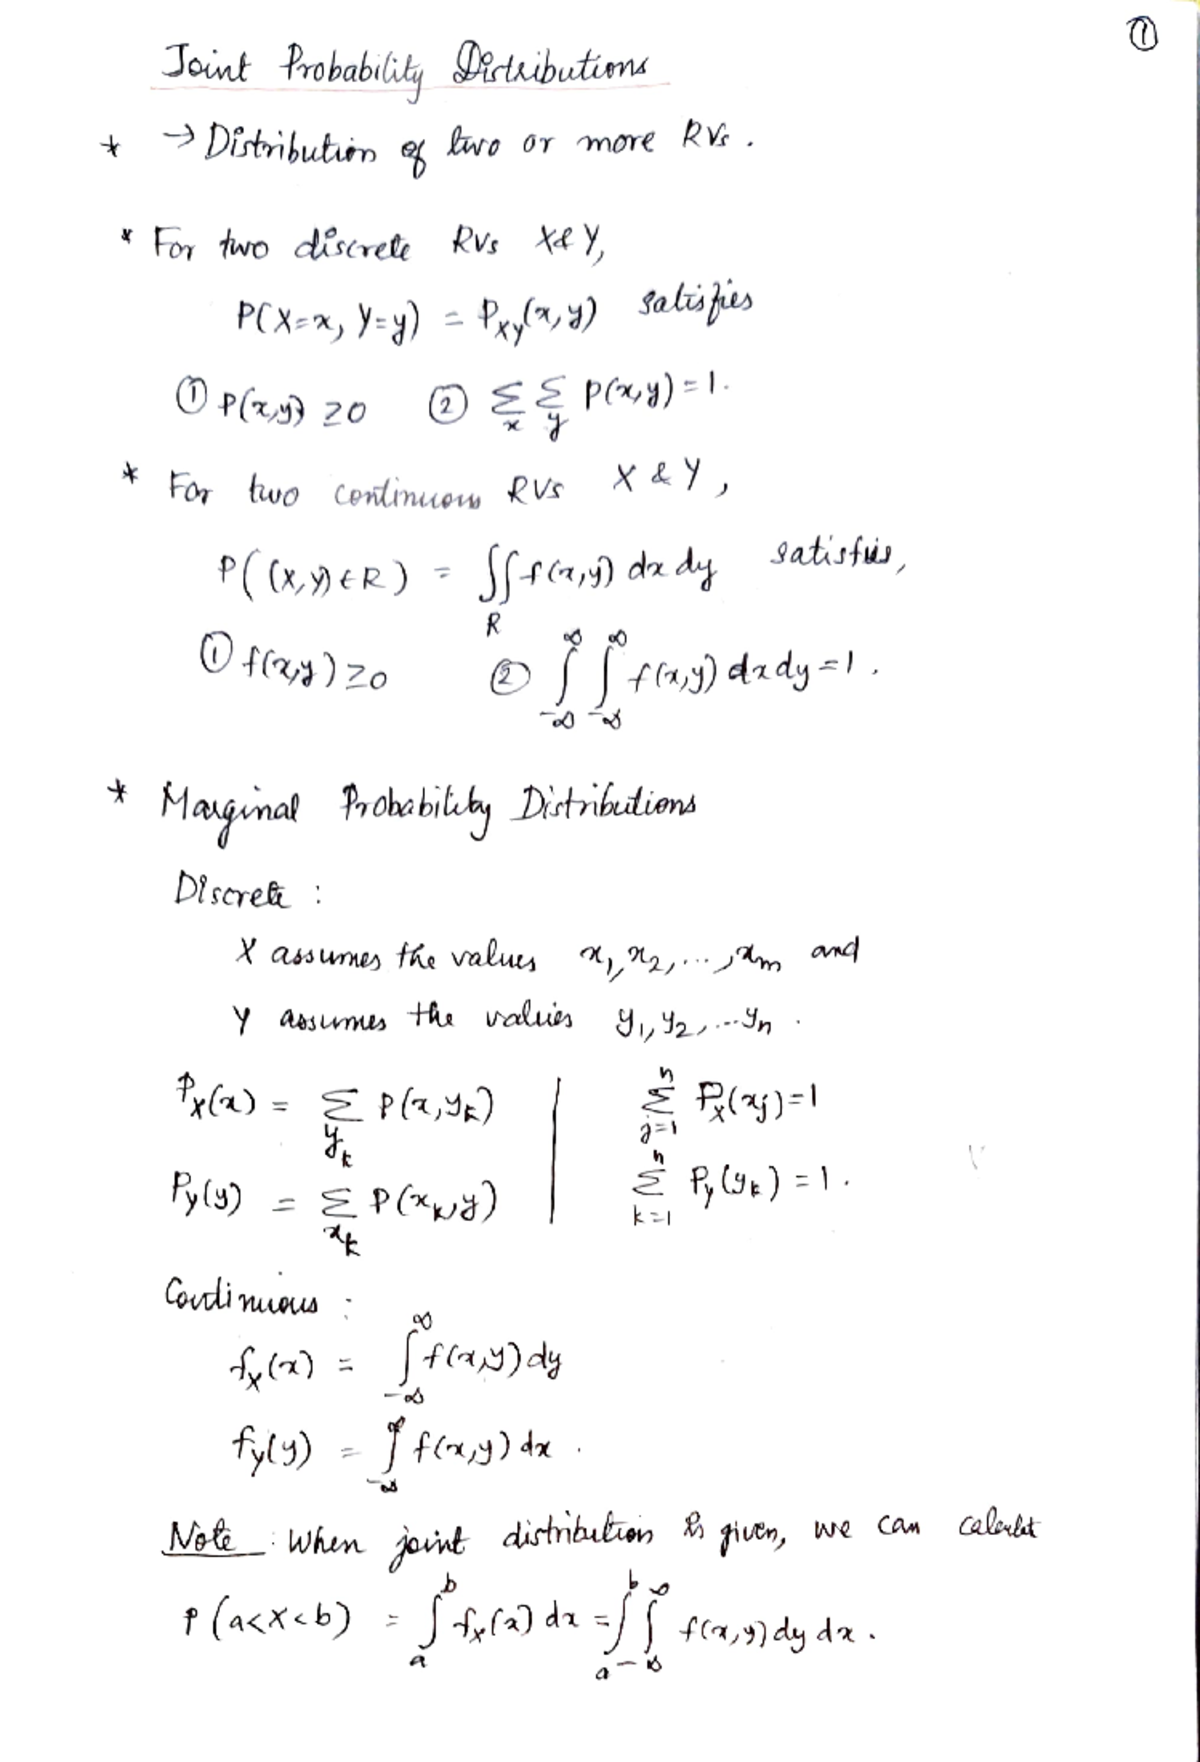 ①
Joint Probability Distributions
* → Distribution of two or more RVs.
* For two discrete RVs X & Y,
P(X=x, Y=y) = P_XY(x,y) satisfies
① P(x,y) ≥0 ② Σ_x Σ_y P(x,y)=1.
* For two continuous RVs X & Y,
P((X,Y)∈R) = ∬_R f(x,y) dx dy satisfies,
① f(x,y)≥0 ② ∫_{-∞}^{∞} ∫_{-∞}^{∞} f(x,y) dx dy =1.
* Marginal Probability Distributions
Discrete :
X assumes the values x₁, x₂, ..., x_m and
Y assumes the values y₁, y₂, ... y_n .
P_X(x) = Σ_{y_k} P(x,y_k) | Σ_{j=1}^{n} P_X(x_j)=1
P_Y(y) = Σ_{x_k} P(x_k,y) | Σ_{k=1}^{n} P_Y(y_k) =1.
Continuous :
f_X(x) = ∫_{-∞}^{∞} f(x,y) dy
f_Y(y) = ∫_{-∞}^{∞} f(x,y) dx .
Note : When joint distribution is given, we can
P(a<X<b) = ∫_a^b f_X(x) dx = ∫_a^b ∫_{-∞}^{∞} f(x,y) dy dx .